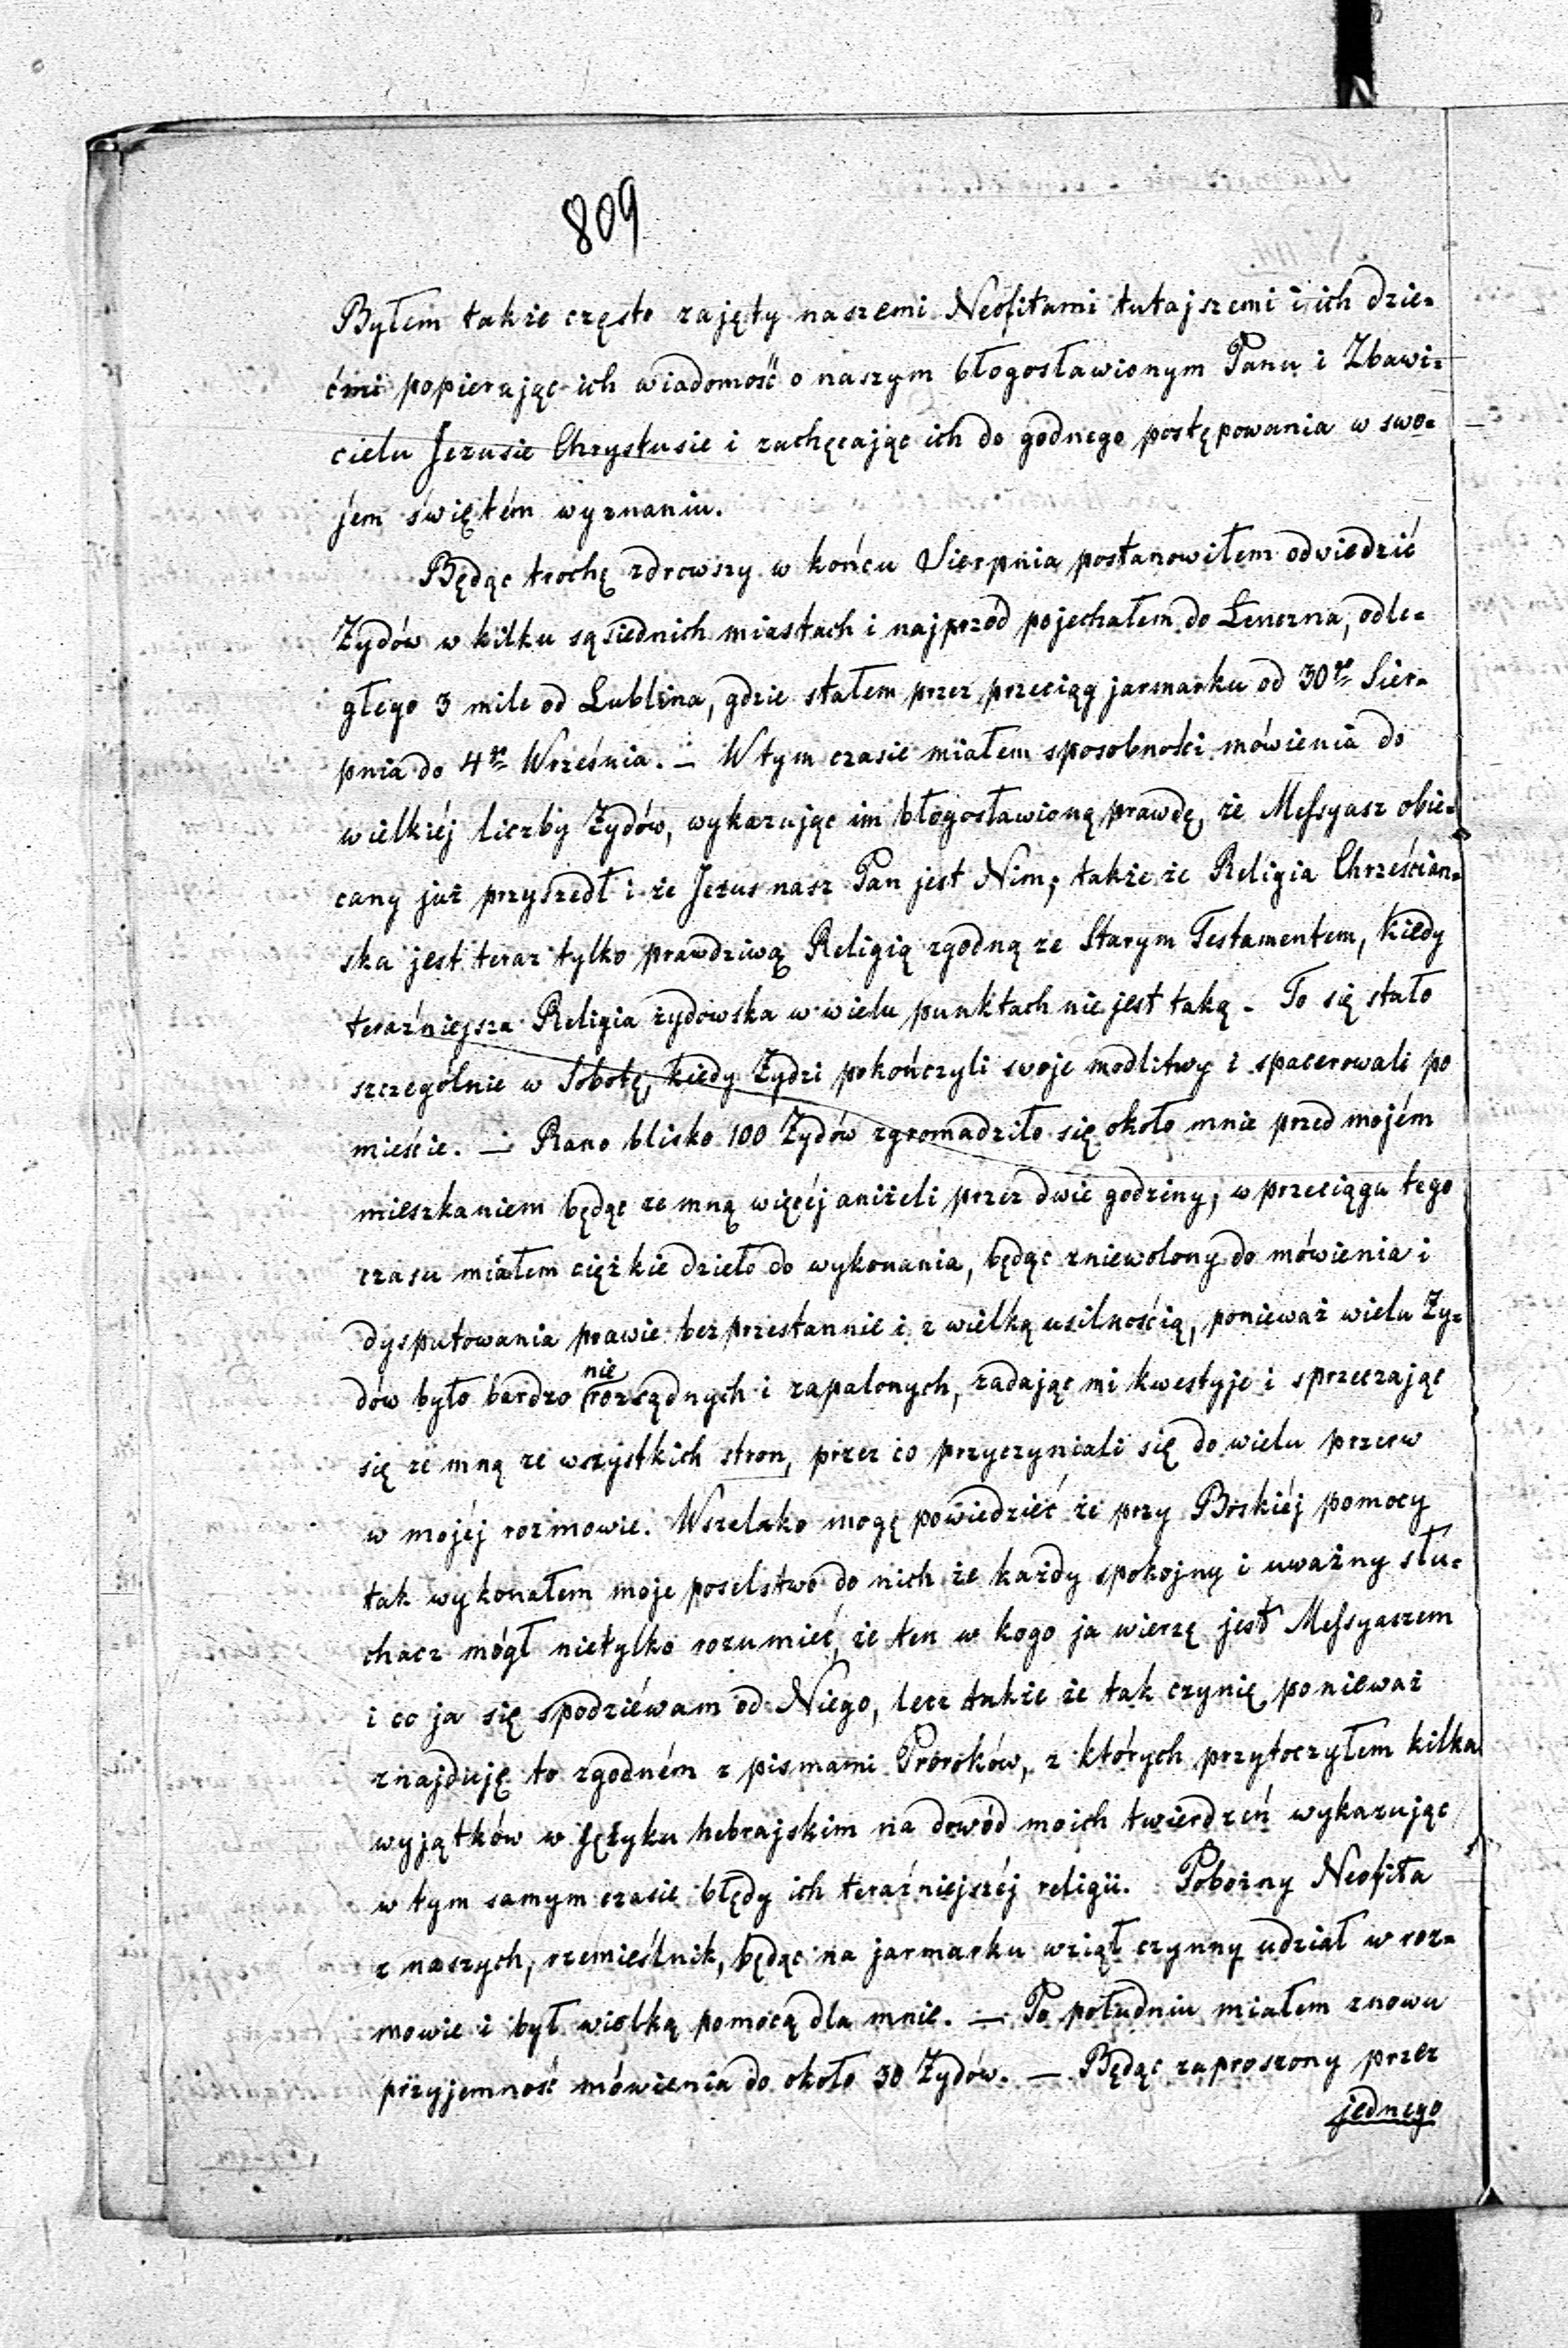 809
Byłem także często zajęty naszemi Neofitami tutajszemi i ich dzie-
ćmi popierając ich wiadomość o naszym błogosławionym Panu i Zbawi-
cielu Jezusie Chrystusie i zachęcając ich do godnego postępowania w swo-
jem świętém wyznaniu.
Będąc trochę zdrowszy w końcu Sierpnia postanowiłem odwiedzić
Żydów w kilku sąsiednich miastach i najprzód pojechałem do Łenczna, odle-
głego 3 mile od Lublina, gdzie stałem przez przeciąg jarmarku od 30go Sier-
pnia do 4go Września. — W tym czasie miałem sposobności mówienia do
wielkiéj liczby Żydów, wykazując im błogosławioną prawdę, że Messyasz obie-
cany już przyszedł i że Jezus nasz Pan jest Nim; także że Religia Chrześcian-
ska jest teraz tylko prawdziwą Religią zgodną ze Starym Testamentem, kiedy
teraźniejsza Religia żydowska w wielu punktach nie jest taką. To się stało
szczególnie w Sobotę, kiedy Żydzi pokończyli swoje modlitwy i spacerowali po
mieście. — Rano blisko 100 Żydów zgromadziło się około mnie przed mojém
mieszkaniem będąc ze mną więcéj aniżeli przez dwie godziny; w przeciągu tego
czasu miałem ciężkie dzieło do wykonania, będąc zniewolony do mówienia i
dysputowania prawie bezprzestannie i z wielką usilnością, ponieważ wielu Ży-
dów było bardzo nierozsądnych i zapalonych, zadając mi kwestyje i sprzeczając
się ze mną ze wszystkich stron, przez co przyczyniali się do wielu przerw
w mojéj rozmowie. Wszelako mogę powiedzieć że przy Boskiéj pomocy
tak wykonałem moje poselstwo do nich że każdy spokojny i uważny słu-
chacz mógł nietylko rozumieć, że ten w kogo ja wierzę jest Messyaszem
i co ja się spodziéwam od Niego, lecz także że tak czynię ponieważ
znajduję to zgodném z pismami Proroków, z których przytoczyłem kilka
wyjątków w języku hebrajskim na dowód moich twierdzeń wykazując
w tym samym czasie błędy ich teraźniejszéj religii. Pobożny Neofita
z naszych, rzemieślnik, będąc na jarmarku wziął czynny udział w roz-
mowie i był wielką pomocą dla mnie. — Po południu miałem znowu
przyjemność mówienia do około 30 Żydów. — Będąc zaproszony przez
jednego